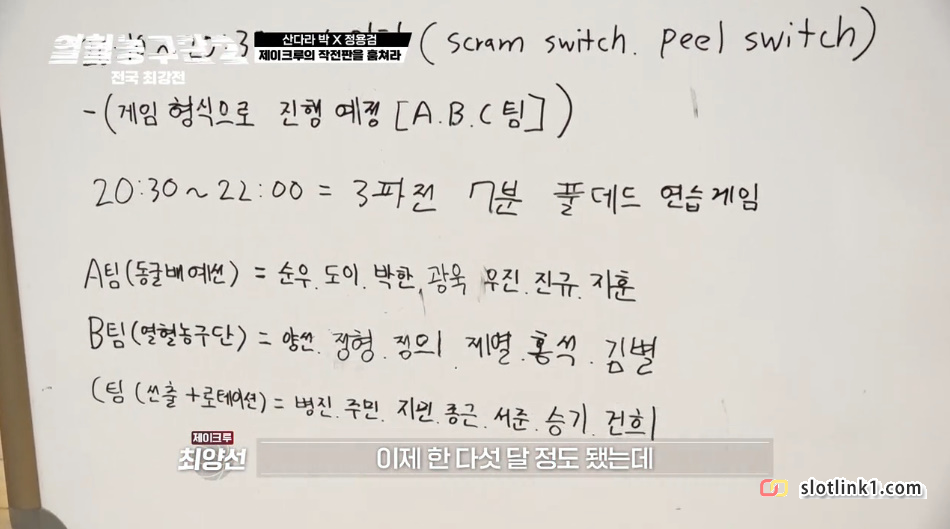 열혈농구단
전국 최강전
산다라 박 X 정용검
제이크루의 작전판을 훔쳐라
(scram switch. peel switch)
-(게임 형식으로 진행 예정 [A.B.C팀])
20:30~22:00 = 3파전 7분 풀데드 연습게임
A팀(동글배 예선) = 순우. 도이. 박한. 광욱. 우진. 진규. 지훈
B팀(열혈농구단) = 양선. 정형. 정의. 제열. 홍석. 김별
C팀 (쓰출+로테이션) = 병진. 주민. 지빈. 종근. 서준. 승기. 건희
제이크루
최양선
이제 한 다섯 달 정도 됐는데
slotlink1.com